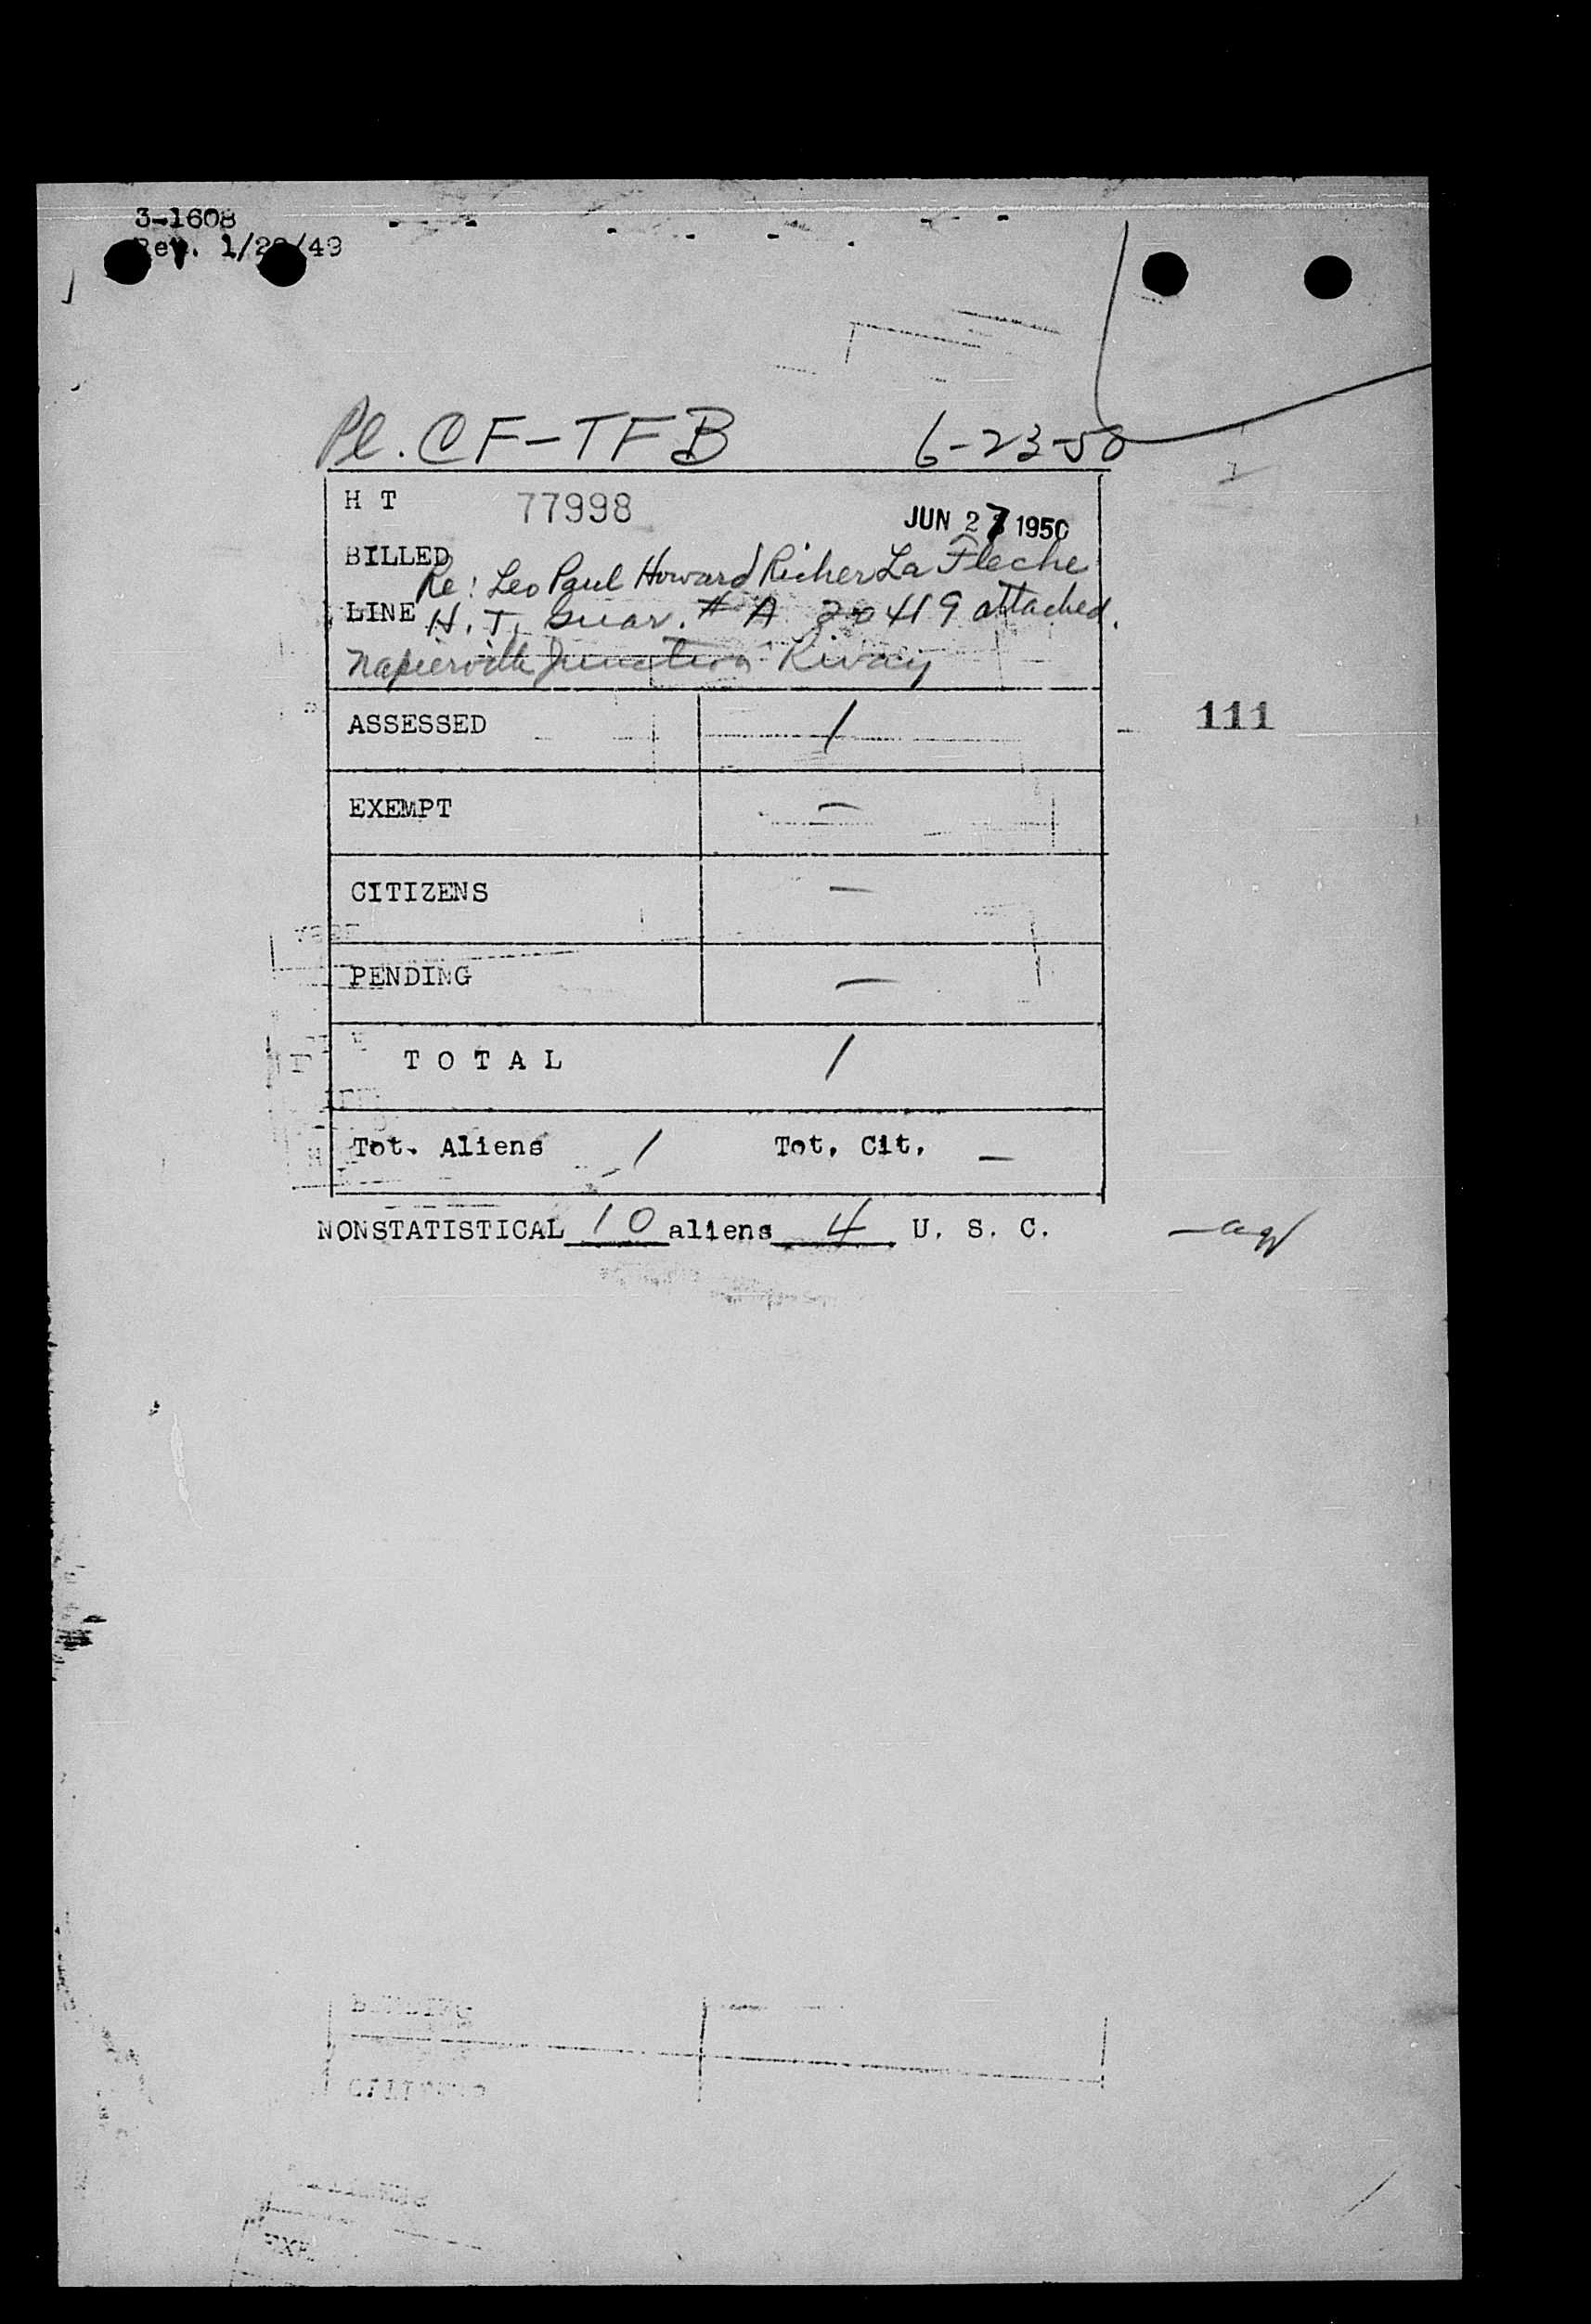 3-1608
Rev. 1/28/49
Pl. CF-TFB 6-23-50
H T 77998 JUN 27 1950
BILLED
Re: Leo Paul Howard Richer La Fleche
LINE H. T. Guar. # A 20419 attached.
Napierville Junction Rlway
ASSESSED / 111
EXEMPT —
CITIZENS —
PENDING —
T O T A L /
Tot. Aliens / Tot. Cit. —
NONSTATISTICAL 10 aliens 4 U. S. C.